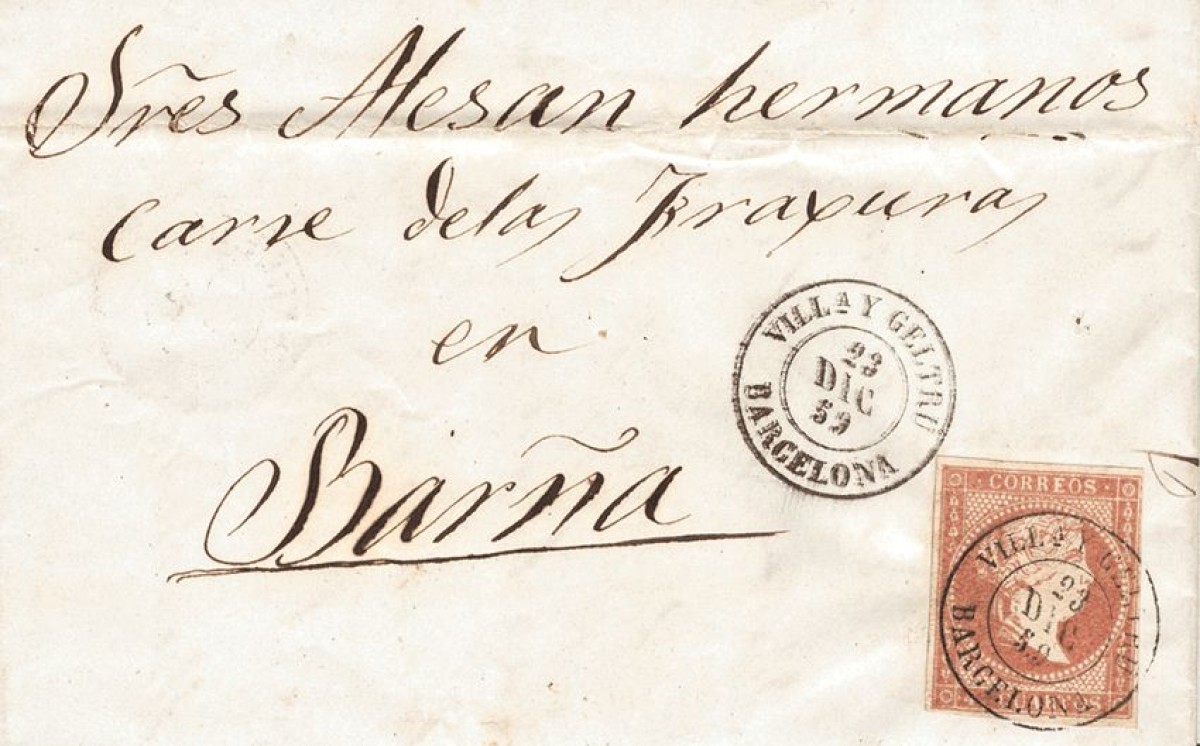 Sr̃es Alesan hermanos
carre de las Traxuras
en
Barña
VILLª Y GELTRU
23
DIC
59
BARCELONA
CORREOS
VILLª Y GELTRU
23
DIC
59
BARCELONA